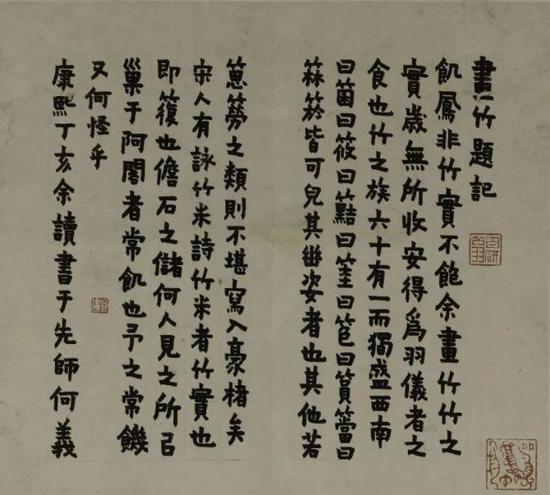 畫竹題記
飢鳳非竹實不飽余畫竹竹之
實歲無所收安得爲羽儀者之
食也竹之族六十有一而獨盛西南
曰箘曰筱曰曰筀曰笆曰篔簹曰
箖箊皆可皃其幽姿者也其他若
篣之類則不堪寫入豪楮矣
宋人有詠竹米詩竹米者竹實也
即也儋石之儲何人見之所㠯
巢于阿閣者常飢也予之常饑
又何怪乎
康熙丁亥余讀書于先師何義